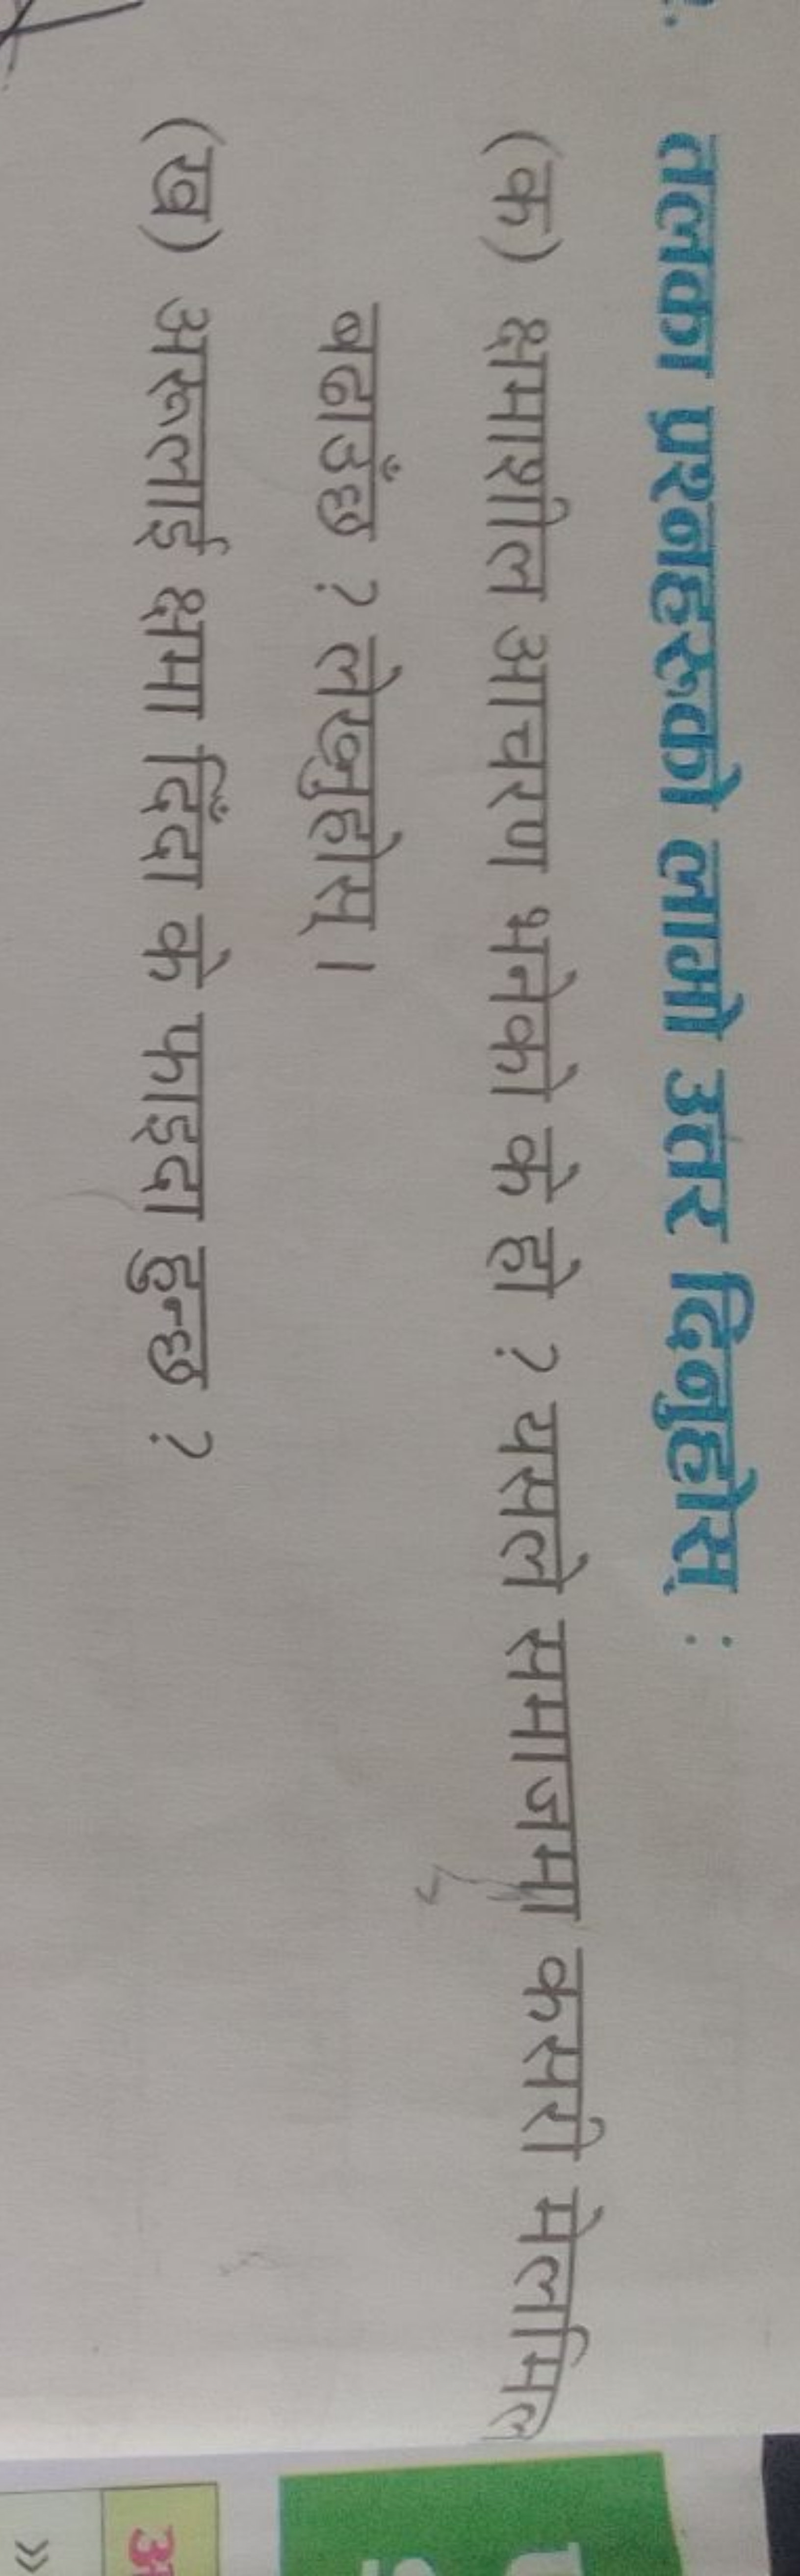 तलका प्रश्नहरूको लामो उत्तर दिनुहोस् :
(क) क्षमाशील आचरण भनेको के हो ? यसले समाजमा कसरी मेलमिल
बढाउँछ ? लेख्नुहोस् ।
(ख) अरूलाई क्षमा दिँदा के फाइदा हुन्छ ?